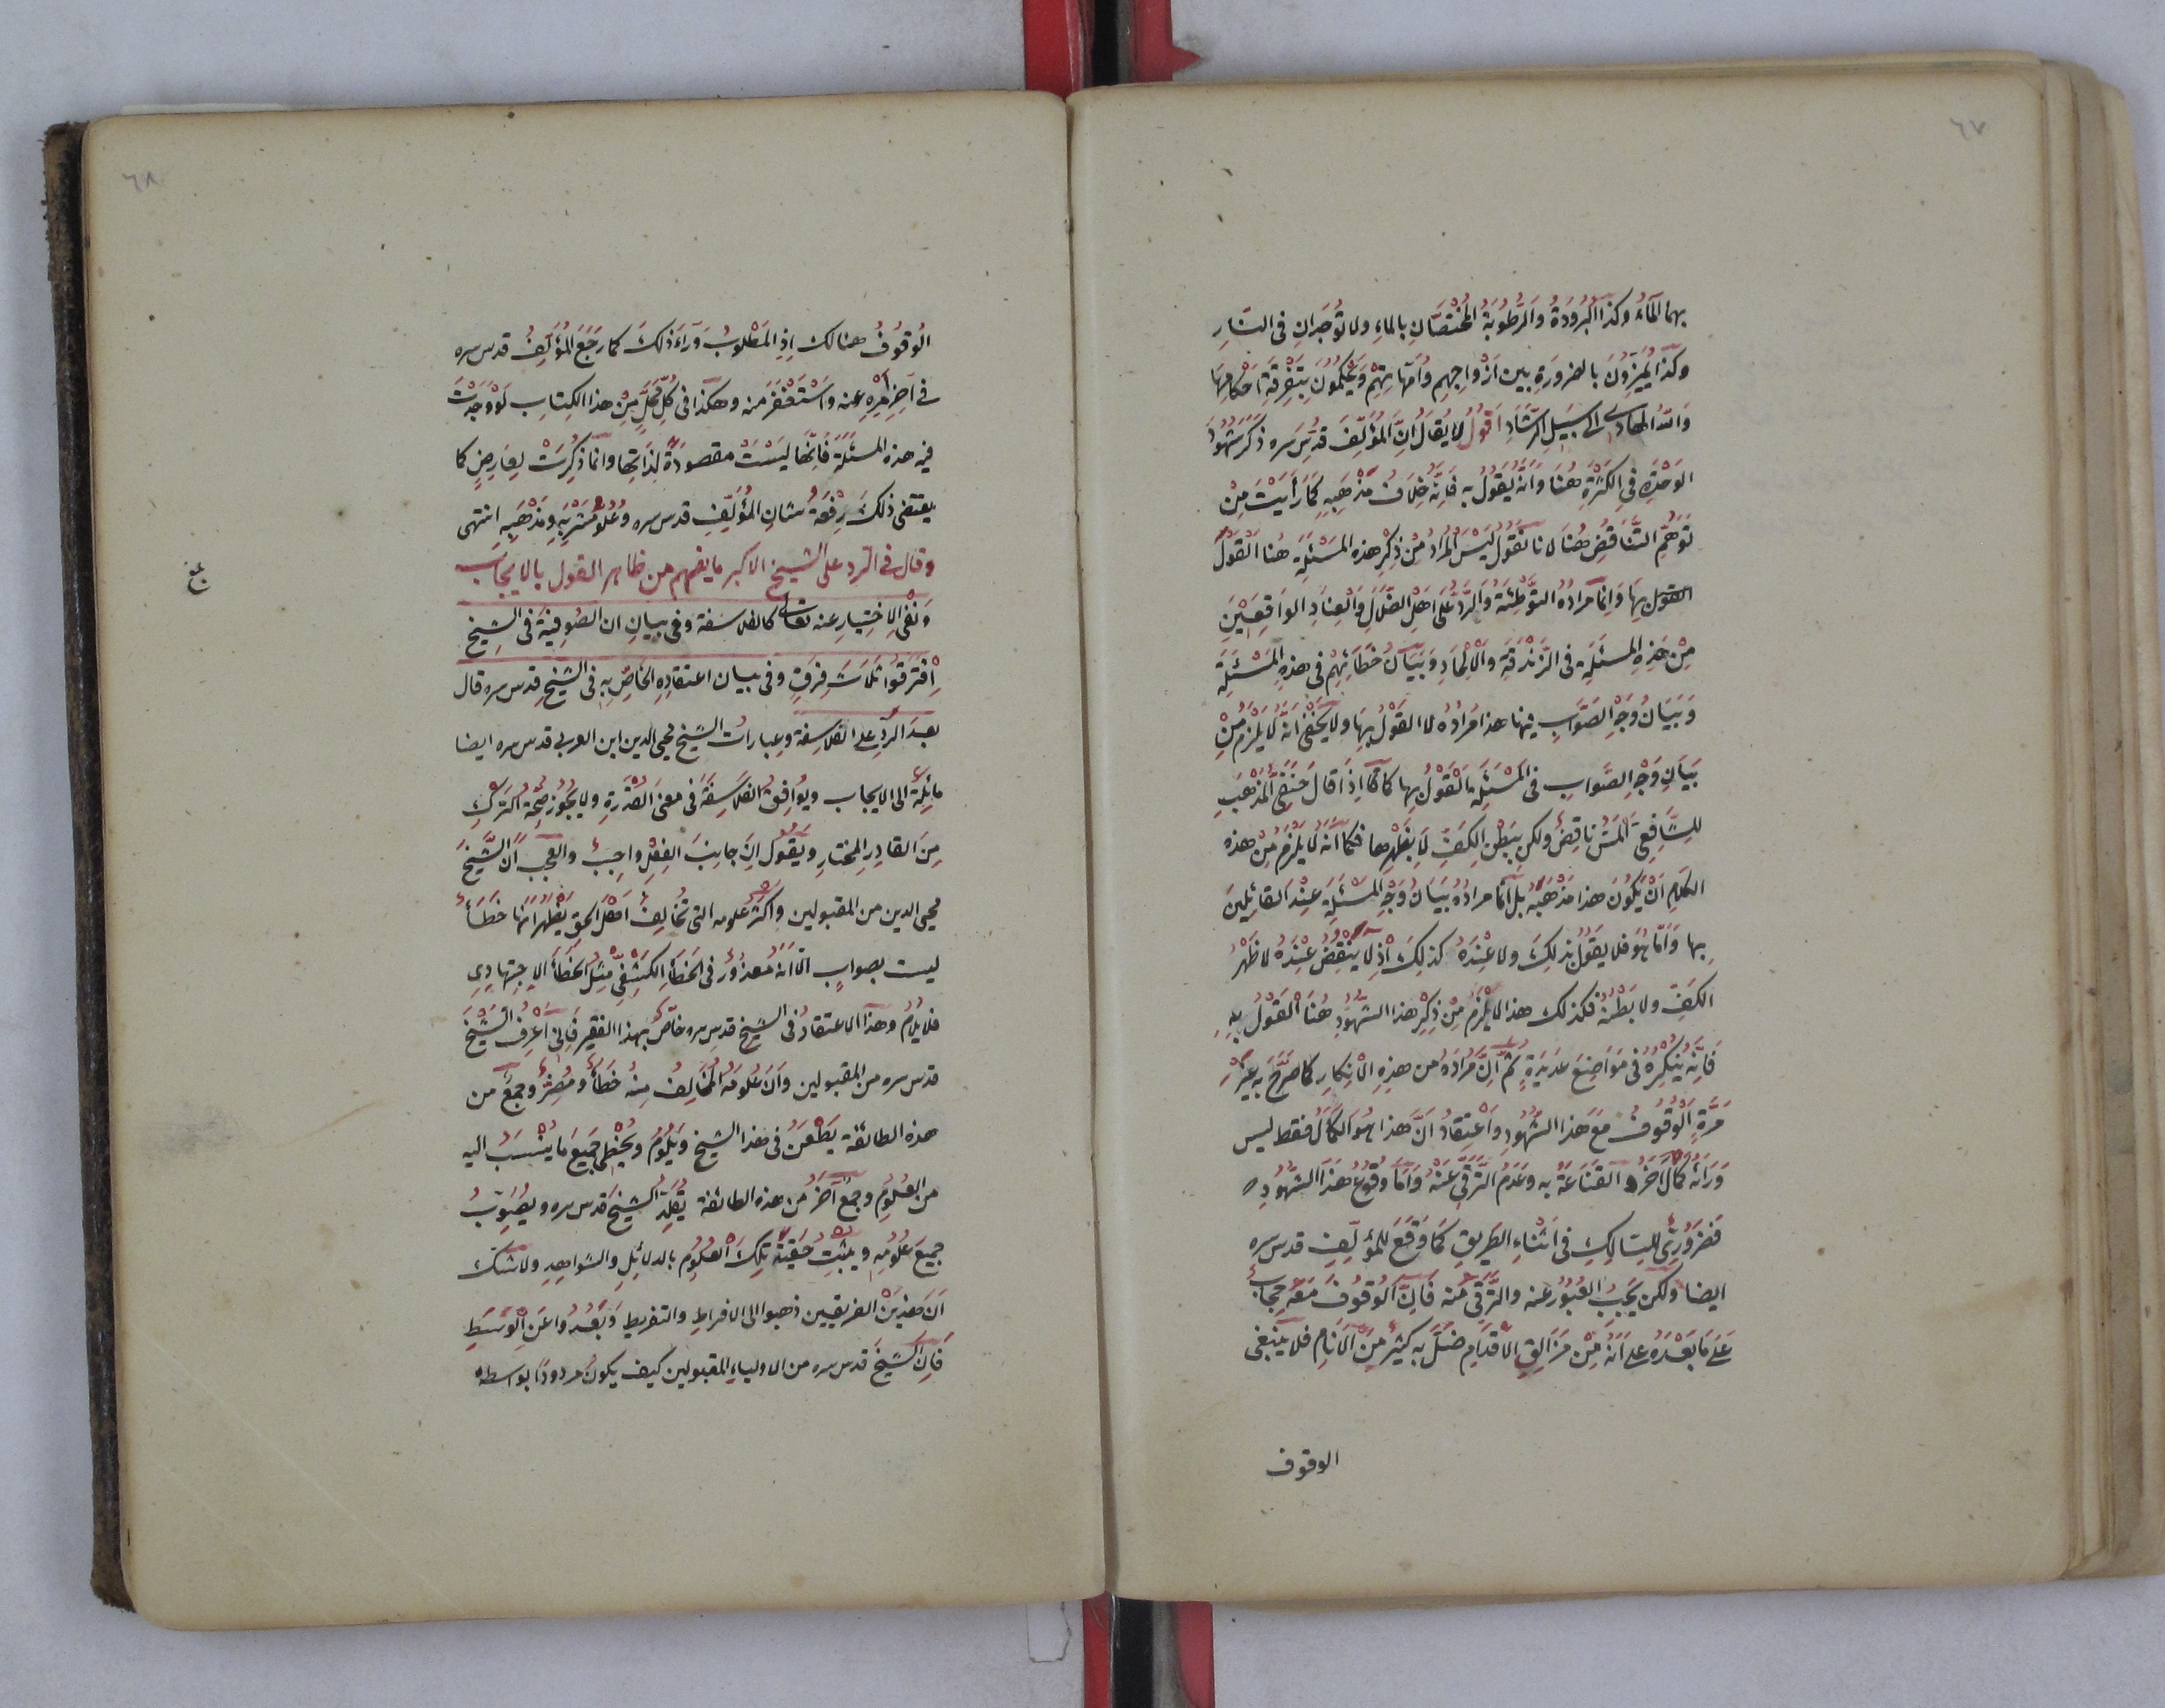 ٦٧
بهما الماء وكذا البرودة والرطوبة المختصان بالماء ولا توجدان في النار
وكذا يميزون بالضرورة بين ازواجهم وامهاتهم ويحكمون بتفرقة احكامها
والله الهادي الى سبيل الرشاد اقول لا يقال ان المؤلف قدس سره ذكر شهود
الوحدة في الكثرة هنا وانه يقول به فانه خلاف مذهبه كما رأيت من
توهم التناقض هنا لانا نقول ليس المراد من ذكر هذه المسئلة هنا القول
القول بها وانما مراده التوطئة والرد على اهل الضلال والعناد الواقعين
من هذه المسئلة في الزندقة والالحاد وبيان خطائهم في هذه المسئلة
وبيان وجه الصواب فيها هذا مراده لا القول بها ولا يخفى انه لا يلزم من
بيان وجه الصواب في المسئلة القول بها كما اذا قال حنفي المذهب
للشافعي المس ناقض ولكن ببطن الكف لا بظهرها فكما انه لا يلزم من هذه
الكلام ان يكون هذا مذهبه بل انما مراده بيان وجه المسئلة عند القائلين
بها واما هو فلا يقول بذلك ولا عنده كذلك اذ لا ينقض عنده لا ظهر
الكف ولا بطنه فكذلك هذا لا يلزم من ذكر هذا الشهود هنا القول به
فانه ينكره في مواضع عديدة ثم ان مراده من هذه الانكار كما صرح به غير
مرة الوقوف مع هذا الشهود واعتقاد ان هذا هو الكمال فقط ليس
ورائه كمال آخر القناعة به وعدم الترقي عنه واما وقوع هذا الشهود
فضروري للسالك في اثناء الطريق كما وقع للمؤلف قدس سره
ايضا ولكن يجب العبور عنه والترقي منه فان الوقوف معه حجاب
على ما بعده على انه من مزالق الاقدام ضل به كثير من الانام فلا ينبغي
الوقوف
٦٨
الوقوف هنالك اذ المطلوب وراء ذلك كما رجع المؤلف قدس سره
في آخر امره عنه واستغفر منه وهكذا في كل محل من هذا الكتاب لو وجدت
فيه هذه المسئلة فانها ليست مقصودة لذاتها وانما ذكرت لعارض كما
يقتضي ذلك رفعة شان المؤلف قدس سره وعلو مشربه ومذهبه انتهى
وقال في الرد على الشيخ الاكبر ما يفهم من ظاهر القول بالايجاب
ونفي الاختيار عنه تعالى كالفلاسفة وفي بيان ان الصوفية في الشيخ
افترقوا ثلاث فرق وفي بيان اعتقاده الخاص به في الشيخ قدس سره قال
بعد الرد على الفلاسفة وعبارات الشيخ محيي الدين ابن العربي قدس سره ايضا
مائلة الى الايجاب ويوافق الفلاسفة في معنى القدرة ولا يجوز صحة الترك
من القادر المختار ويقول ان جانب الفعل واجب والعجب ان الشيخ
محيي الدين من المقبولين واكثر علومه التي تخالف اهل الحق يظهر انها خطأ
ليست بصواب الا انه معذور في الخطأ الكشفي مثل الخطأ الاجتهادي
فلا يلام وهذا الاعتقاد في الشيخ قدس سره خاص بهذا الفقير فاني اعرف الشيخ
قدس سره من المقبولين وان علومه المخالف منه خطأ ومضر وجمع من
هذه الطائفة يطعن في هذا الشيخ ويلوم ويخطي جميع ما ينسب اليه
من العلوم وجمع آخر من هذه الطائفة يقلد الشيخ قدس سره ويصوب
جميع علومه ويثبت حقية تلك العلوم بالدلائل والشواهد ولا شك
ان هذين الفريقين ذهبوا الى الافراط والتفريط وبعدوا عن الوسط
فان الشيخ قدس سره من الاولياء المقبولين كيف يكون مردودا بواسطة